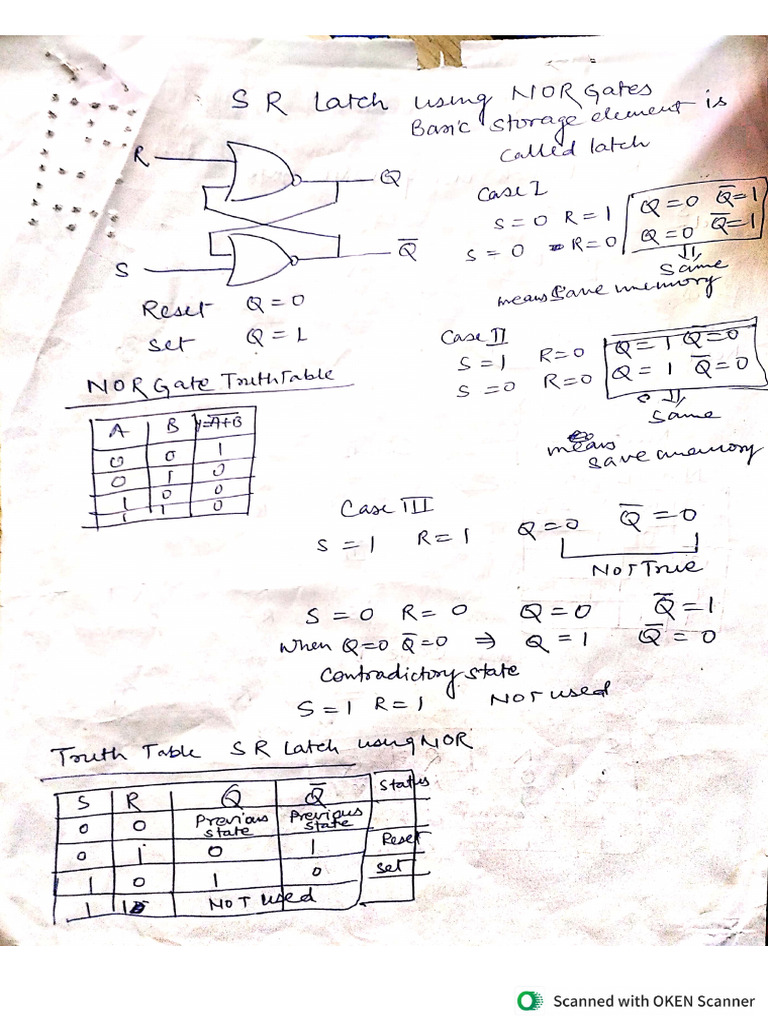 SR Latch using NOR Gates
Basic storage element is
called latch
R
Q
S
Q̅
Reset Q = 0
Set Q = 1
Case I
S = 0 R = 1 Q = 0 Q̅ = 1
S = 0 R = 0 Q = 0 Q̅ = 1
⇓
Same
means Save memory
Case II
S = 1 R = 0 Q = 1 Q̅ = 0
S = 0 R = 0 Q = 1 Q̅ = 0
⇓
Same
means
save memory
NOR Gate Truth Table
A B Y=\overline{A+B}
0 0 1
0 1 0
1 0 0
1 1 0
Case III
S = 1 R = 1 Q = 0 Q̅ = 0
Not True
S = 0 R = 0 Q̅ = 0 Q̅ = 1
When Q=0 Q̅=0 ⇒ Q = 1 Q̅ = 0
Contradictory state
S = 1 R = 1 Not used
Truth Table SR Latch using NOR
S R Q Q̅ Status
0 0 Previous state Previous state
0 1 0 1 Reset
1 0 1 0 Set
1 1 NOT used
Scanned with OKEN Scanner